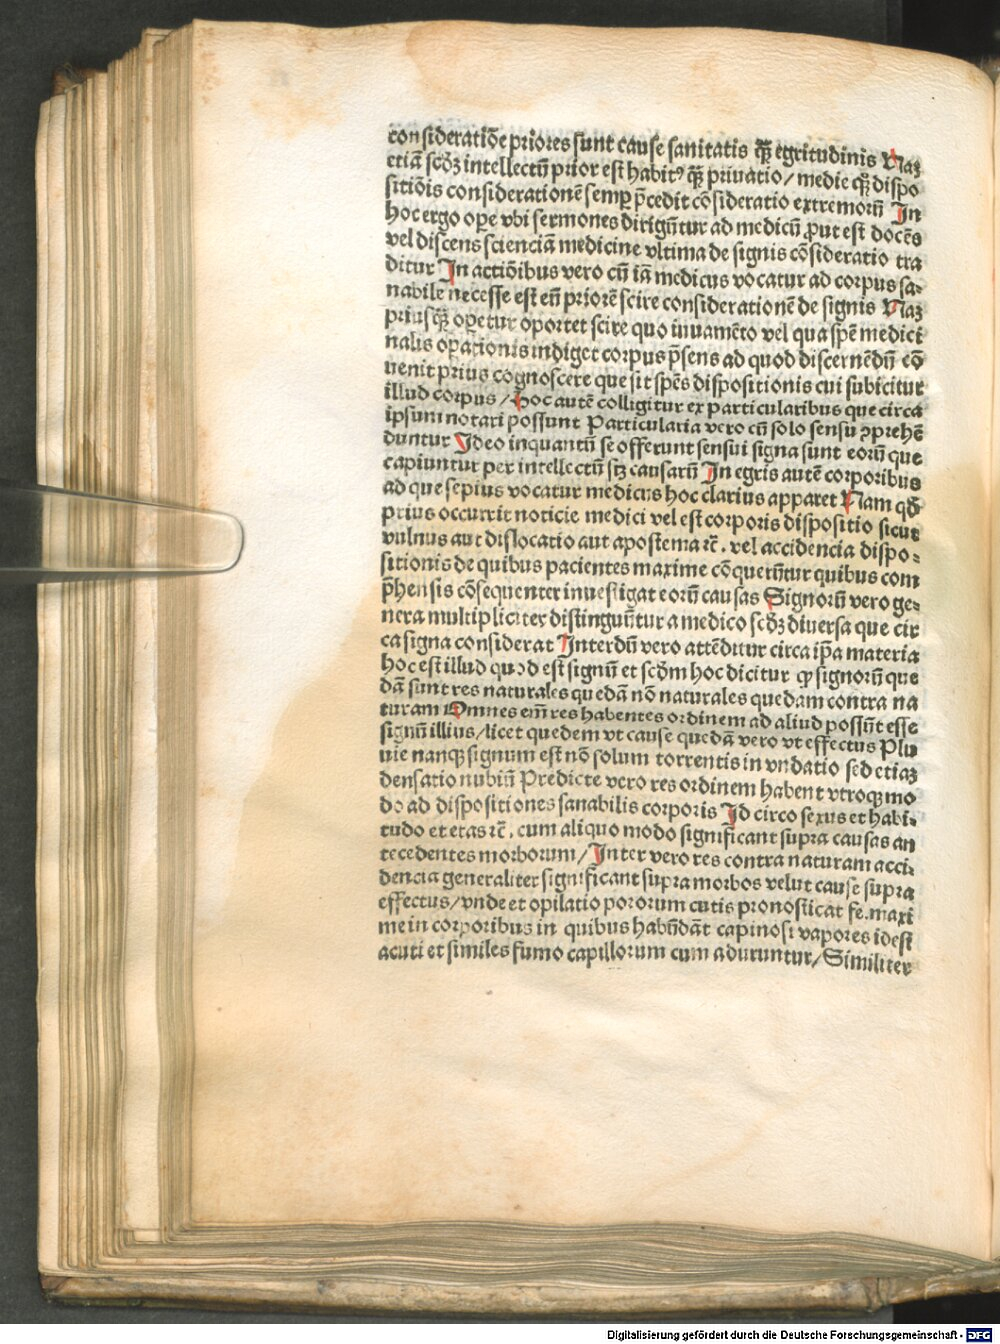 consideratiōe priores sunt cause sanitatis q̄ꝫ egritudinis Naꝫ
etiā scd̄ꝫ intellectū prior est habitꝰ q̄ꝫ priuatio/ medie qꝫ dispo
sitiōis considerationē semꝑ p̄cedit cōsideratio extremorū In
hoc ergo oꝑe vbi sermones dirigūtur ad medicū ꝓut est docēs
vel discens scienciā medicine vltima de signis cōsideratio tra
ditur In actiōibus vero cū iā medicus vocatur ad corpus sa⸗
nabile necesse est eū priorē scire considerationē de signis Naꝫ
priusq̄ꝫ oꝑetur oportet scire quo iuuamēto vel qua spē medici
nalis oꝑationis indiget corpus p̄sens ad quod discernēdū cō
uenit prius cognoscere que sit spēs dispositionis cui subicitur
illud corpus/ Hoc autē colligitur ex particularibus que circa
ipsum notari possunt Particularia vero cū solo sensu ꝯprehē
duntur Ideo inquantū se offerunt sensui signa sunt eorū que
capiuntur per intellectū sꝫ causarū In egris autē corporibus
ad que sepius vocatur medicus hoc clarius apparet Nam qd̄
prius occurrit noticie medici vel est corporis dispositio sicut
vulnus aut dislocatio aut apostema ꝛc̄. vel accidencia dispo⸗
sitionis de quibus pacientes maxime cōquerūtur quibus com
p̄hensis cōsequenter inuestigat eorū causas Signorū vero ge⸗
nera multipliciter distinguūtur a medico scd̄ꝫ diuersa que cir
ca signa considerat Interdū vero attēditur circa ip̄a materia
hoc est illud quod est signū et scd̄m hoc dicitur ꝙ signorū que
dā sunt res naturales quedā nō naturales quedam contra na
turam Omnes em̄ res habentes ordinem ad aliud possūt esse
signū illius/licet quedem vt cause quedā vero vt effectus Plu
uie nanqꝫ signum est nō solum torrentis in vndatio sed etiaꝫ
densatio nubiū Predicte vero res ordinem habent vtroqꝫ mo
do ad dispositiones sanabilis corporis Id circo sexus et habi⸗
tudo et etas ꝛc̄. cum aliquo modo significant supra causas an
tecedentes morborum/ Inter vero res contra naturam acci⸗
dencia generaliter significant supra morbos velut cause supra
effectus/ vnde et opilatio pororum cutis pronosticat fe. maxi
me in corporibus in quibus habūdāt capinosi vapores idest
acuti et similes fumo capillorum cum aduruntur/ Similiter
Digitalisierung gefördert durch die Deutsche Forschungsgemeinschaft - DFG